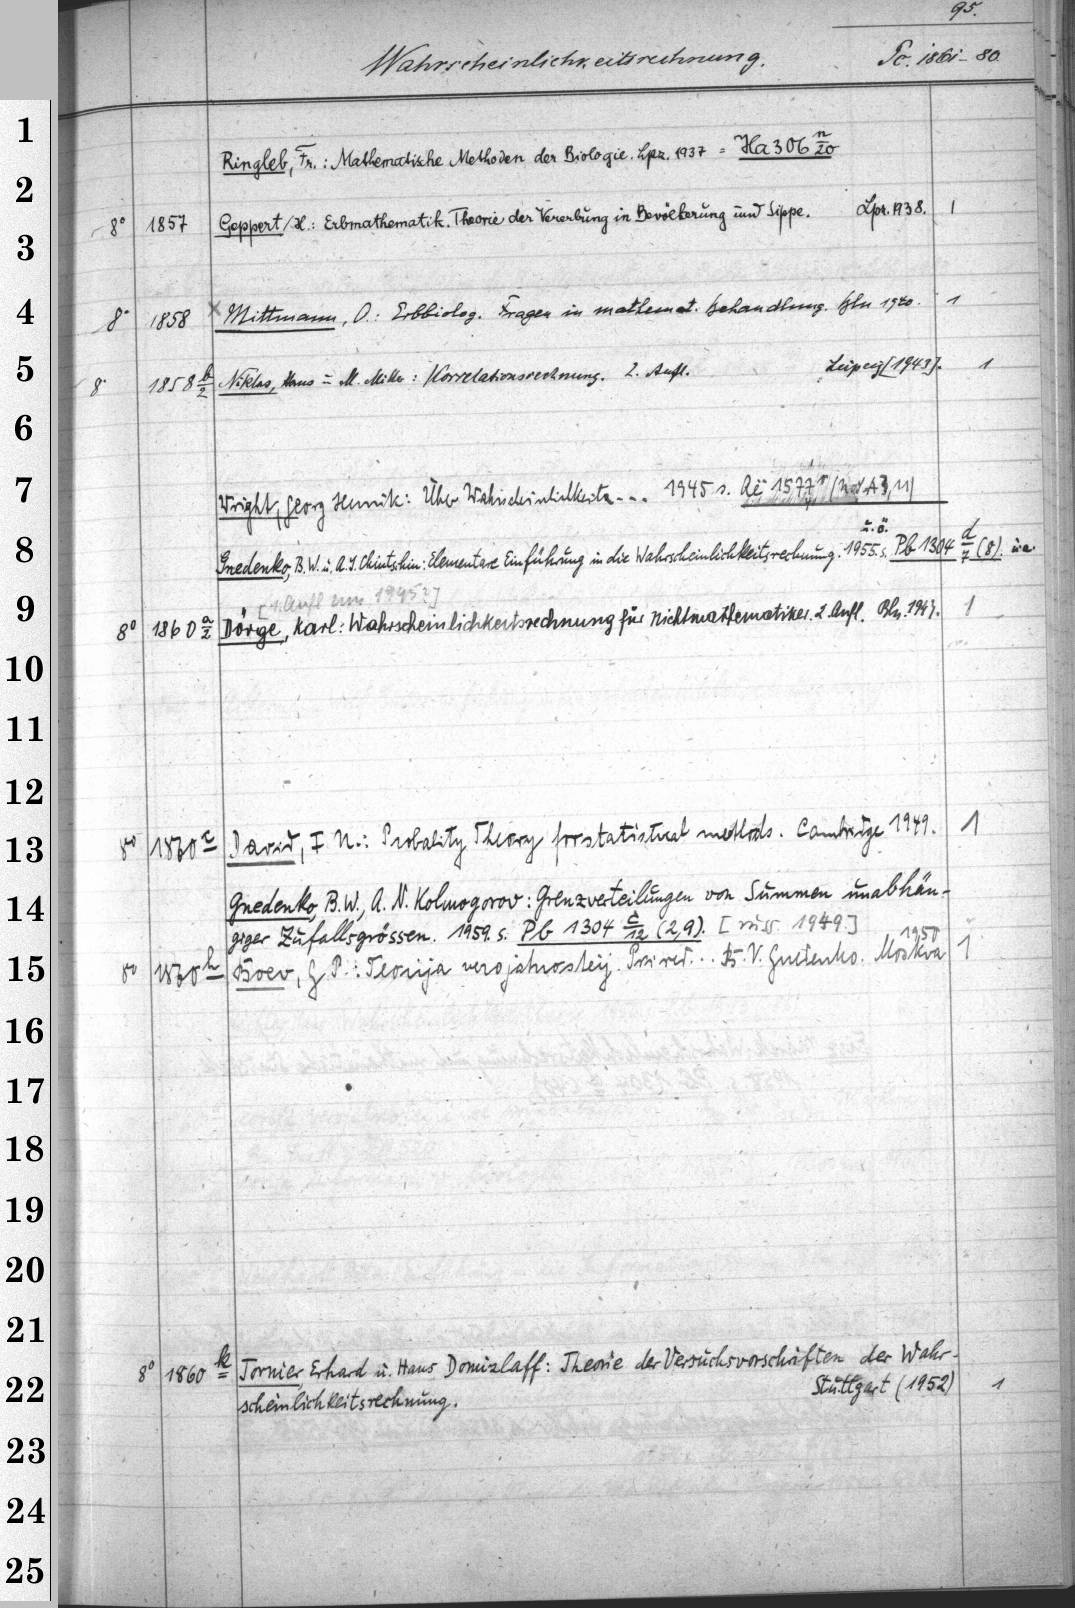 95.
Wahrscheinlichkeitsrechnung. Po. 1861-80
1
Ringleb, Fr.: Mathematische Methoden der Biologie. Lpz. 1937 = Ha 306 n/20
2
8° 1857 Geppert, H.: Erbmathematik. Theorie der Vererbung in Bevölkerung und Sippe. Lpz. 1938. 1
3
4
8° 1858 Mittmann, O.: Erbbiolog. Fragen in mathemat. Behandlung. Bln 1940. 1
5
8° 1858 b/2 Niklas, Hans u. M. Miller: Korrelationsrechnung. 2. Aufl. Leipzig [1943]. 1
6
7
Wright, Georg Henrik: Über Wahrscheinlichkeit... 1945 s. Ae 1577
8
Gnedenko, B.W. u. A.J. Chintshin: Elementare Einführung in die Wahrscheinlichkeitsrechnung. 1955. s. Pb 1304 d/7 (8). u.a.
u.ö.
9
[1. Aufl. 1945?]
8° 1860 a/2 Dörge, Karl: Wahrscheinlichkeitsrechnung für Nichtmathematiker. 2. Aufl. Bln. 1947. 1
10
11
12
13
8° 1860 c David, F. N.: Probality Theory for statistical methods. Cambridge 1949. 1
14
Gnedenko, B.W., A. N. Kolmogorov: Grenzverteilungen von Summen unabhän-
giger Zufallsgrössen. 1959. s. Pb 1304 c/12 (2,9). [russ. 1949.]
15
8° 1860 h Boev, G. P.: Teorija verojatnostej. Pod red... B. V. Gnedenko. Moskva 1950 1
16
17
18
19
20
21
8° 1860 k Tornier, Erhard u. Hans Domizlaff: Theorie der Versuchsvorschriften der Wahr-
22
scheinlichkeitsrechnung. Stuttgart (1952) 1
23
24
25